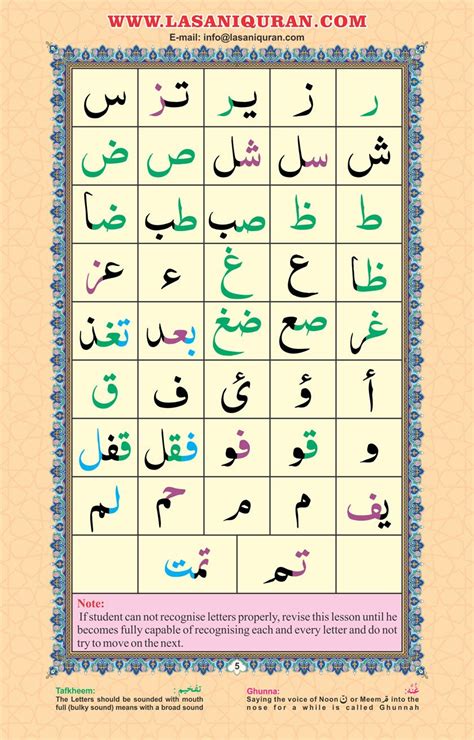 WWW.LASANIQURAN.COM
E-mail: info@lasaniquran.com
ر ز یر تز س
ش سل شل ص ض
ط ظ صب طب ضا
ظا ع غ ء عز
غر صع ضغ بعد تغذ
أ ؤ ئ ف ق
و قو فو فقل قفل
یف م م حم لم
تم تمت
Note:
If student can not recognise letters properly, revise this lesson until he
becomes fully capable of recognising each and every letter and do not
try to move on the next.
5
Tafkheem: تفخیم:
The Letters should be sounded with mouth
full (bulky sound) means with a broad sound
Ghunna: غُنّہ:
Saying the voice of Noon ن or Meem م into the
nose for a while is called Ghunnah